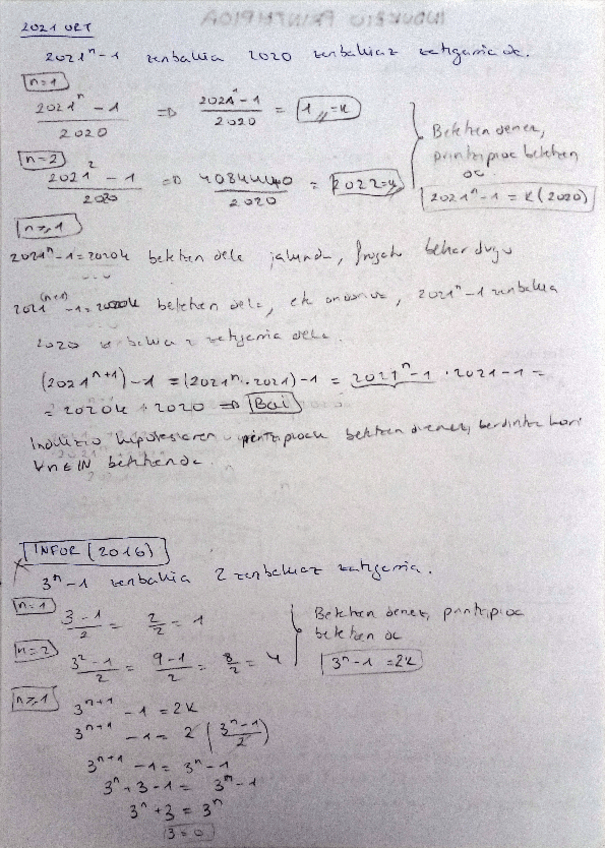 2021 URT
2021ⁿ - 1 zenbakia 2020 zenbakiaz zatigarria da.
n=1
(2021ⁿ - 1)/2020 ⇒ (2021 - 1)/2020 = 1 = k
n=2
(2021² - 1)/2020 ⇒ 4084440/2020 = 2022 = k
Betetzen denez,
printzipioa betetzen
da
2021ⁿ - 1 = k(2020)
n≥1
2021ⁿ - 1 = 2020k betetzen dela jakinda, frogatu behar dugu
2021⁽ⁿ⁺¹⁾ - 1 = 2020k betetzen dela, 2021ⁿ - 1 zenbakia
2020 zatigarria dela.
(2021ⁿ⁺¹) - 1 = (2021ⁿ · 2021) - 1 = 2021ⁿ - 1 · 2021 - 1 =
= 2020k + 2020 ⇒ Bai
Indukzio hipotesiaren printzipioak betetzen direnez, berdintza hori
∀n∈ℕ betetzen da.
INFOR (2016)
3ⁿ - 1 zenbakia 2 zenbakiaz zatigarria.
n=1
(3 - 1)/2 = 2/2 = 1
n=2
(3² - 1)/2 = (9 - 1)/2 = 8/2 = 4
Betetzen denez, printzipioa
betetzen da
3ⁿ - 1 = 2k
n≥1
3ⁿ⁺¹ - 1 = 2k
3ⁿ⁺¹ - 1 = 2 ((3ⁿ - 1)/2)
3ⁿ⁺¹ - 1 = 3ⁿ - 1
3ⁿ + 3 - 1 = 3ⁿ - 1
3ⁿ + 3 = 3ⁿ
3 = 0